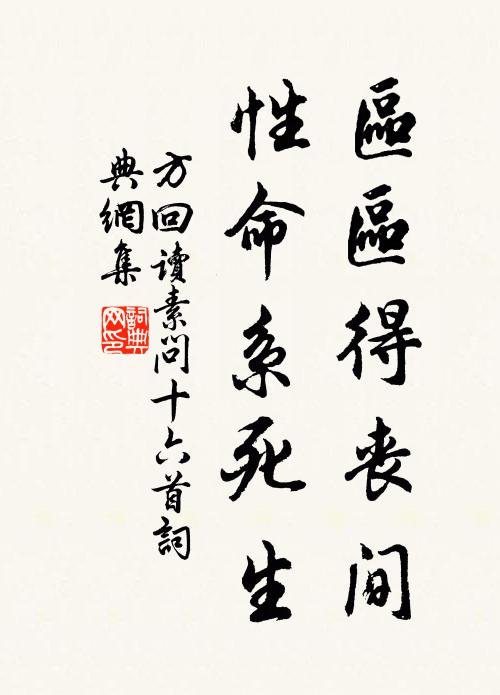 區區得喪間
性命系死生
方回讀素問十六首詞
典網集
詞典
网印